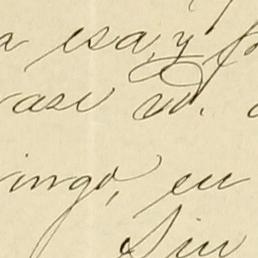 a esa, y
vase vd.
ingo, en
Sin